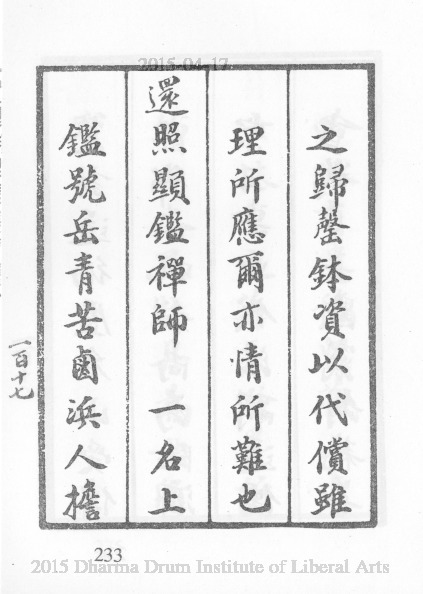 2015-04-17
之歸罄鉢資以代償雖
理所應爾亦情所難也
還照顯鑑禪師 一名上
鑑號岳青苦鹵浜人擔
一百十七
233
2015 Dharma Drum Institute of Liberal Arts